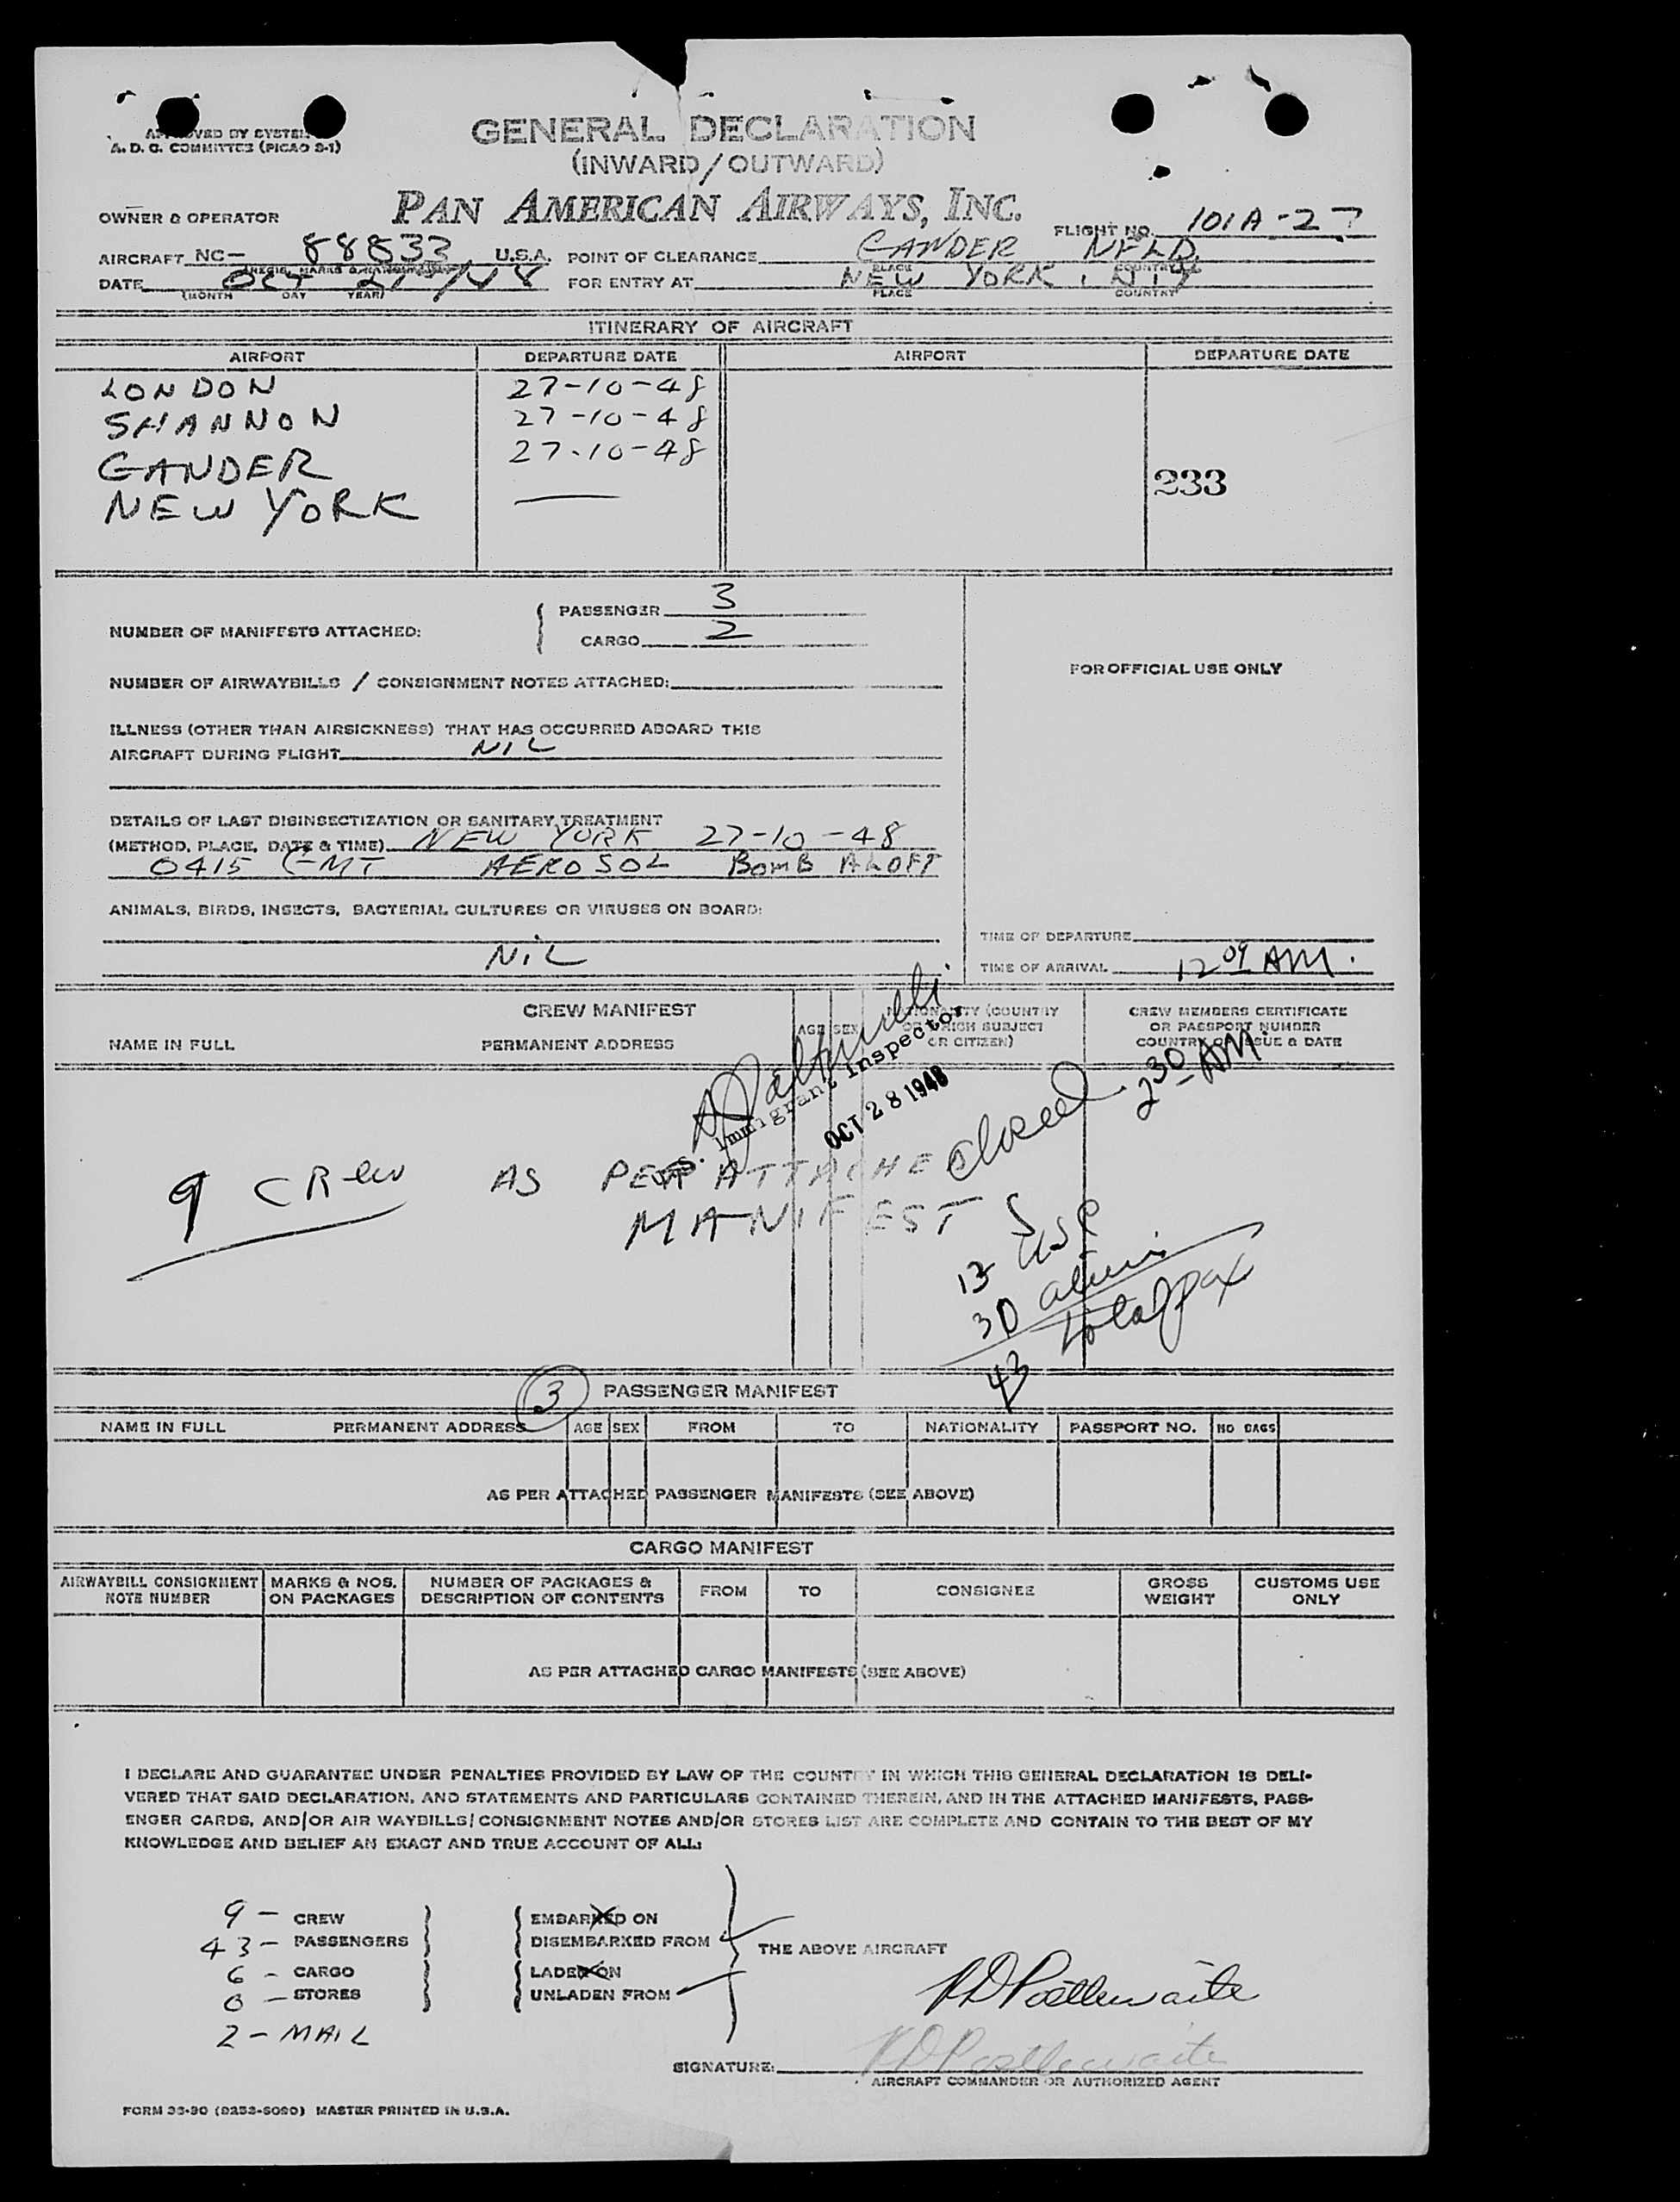 APPROVED BY SYSTEM
A. D. C. COMMITTEE (PICAO S-1)
GENERAL DECLARATION
(INWARD/OUTWARD)
PAN AMERICAN AIRWAYS, INC.
OWNER & OPERATOR
FLIGHT NO. 101A-27
AIRCRAFT NC- 88833 U.S.A. POINT OF CLEARANCE GANDER NFLD
PLACE COUNTRY
DATE OCT 27/48 FOR ENTRY AT NEW YORK, N.Y
(MONTH DAY YEAR) PLACE COUNTRY
ITINERARY OF AIRCRAFT
AIRPORT DEPARTURE DATE AIRPORT DEPARTURE DATE
LONDON 27-10-48
SHANNON 27-10-48
GANDER 27-10-48
233
NEW YORK —
PASSENGER 3
NUMBER OF MANIFESTS ATTACHED:
CARGO 2
FOR OFFICIAL USE ONLY
NUMBER OF AIRWAYBILLS / CONSIGNMENT NOTES ATTACHED:
ILLNESS (OTHER THAN AIRSICKNESS) THAT HAS OCCURRED ABOARD THIS
AIRCRAFT DURING FLIGHT NIL
DETAILS OF LAST DISINSECTIZATION OR SANITARY TREATMENT
(METHOD, PLACE, DATE & TIME) NEW YORK 27-10-48
0415 GMT AEROSOL BOMB ALOFT
ANIMALS, BIRDS, INSECTS, BACTERIAL CULTURES OR VIRUSES ON BOARD:
NIL
TIME OF DEPARTURE
TIME OF ARRIVAL 12 09 AM.
CREW MANIFEST
NAME IN FULL PERMANENT ADDRESS AGE SEX NATIONALITY (COUNTRY
OF WHICH SUBJECT
OR CITIZEN)
CREW MEMBERS CERTIFICATE
OR PASSPORT NUMBER
COUNTRY OF ISSUE & DATE
U.S. Immigrant Inspector
OCT 28 1948
closed 2 30 AM
9 CREW AS PER ATTACHED
MANIFEST
13 USC
30 aliens
43 total pax
3 PASSENGER MANIFEST
NAME IN FULL PERMANENT ADDRESS AGE SEX FROM TO NATIONALITY PASSPORT NO. NO BAGS
AS PER ATTACHED PASSENGER MANIFESTS (SEE ABOVE)
CARGO MANIFEST
AIRWAYBILL CONSIGNMENT NOTE NUMBER MARKS & NOS. ON PACKAGES NUMBER OF PACKAGES & DESCRIPTION OF CONTENTS FROM TO CONSIGNEE GROSS WEIGHT CUSTOMS USE ONLY
AS PER ATTACHED CARGO MANIFESTS (SEE ABOVE)
I DECLARE AND GUARANTEE UNDER PENALTIES PROVIDED BY LAW OF THE COUNTRY IN WHICH THIS GENERAL DECLARATION IS DELI-
VERED THAT SAID DECLARATION, AND STATEMENTS AND PARTICULARS CONTAINED THEREIN, AND IN THE ATTACHED MANIFESTS, PASS-
ENGER CARDS, AND/OR AIR WAYBILLS/CONSIGNMENT NOTES AND/OR STORES LIST ARE COMPLETE AND CONTAIN TO THE BEST OF MY
KNOWLEDGE AND BELIEF AN EXACT AND TRUE ACCOUNT OF ALL:
9 - CREW EMBARKED ON
43 - PASSENGERS DISEMBARKED FROM
THE ABOVE AIRCRAFT
6 - CARGO LADEN ON
0 - STORES UNLADEN FROM
2 - MAIL
RD Postlewaite
SIGNATURE: RD Postlewaite
AIRCRAFT COMMANDER OR AUTHORIZED AGENT
FORM 33-90 (9252-5090) MASTER PRINTED IN U.S.A.